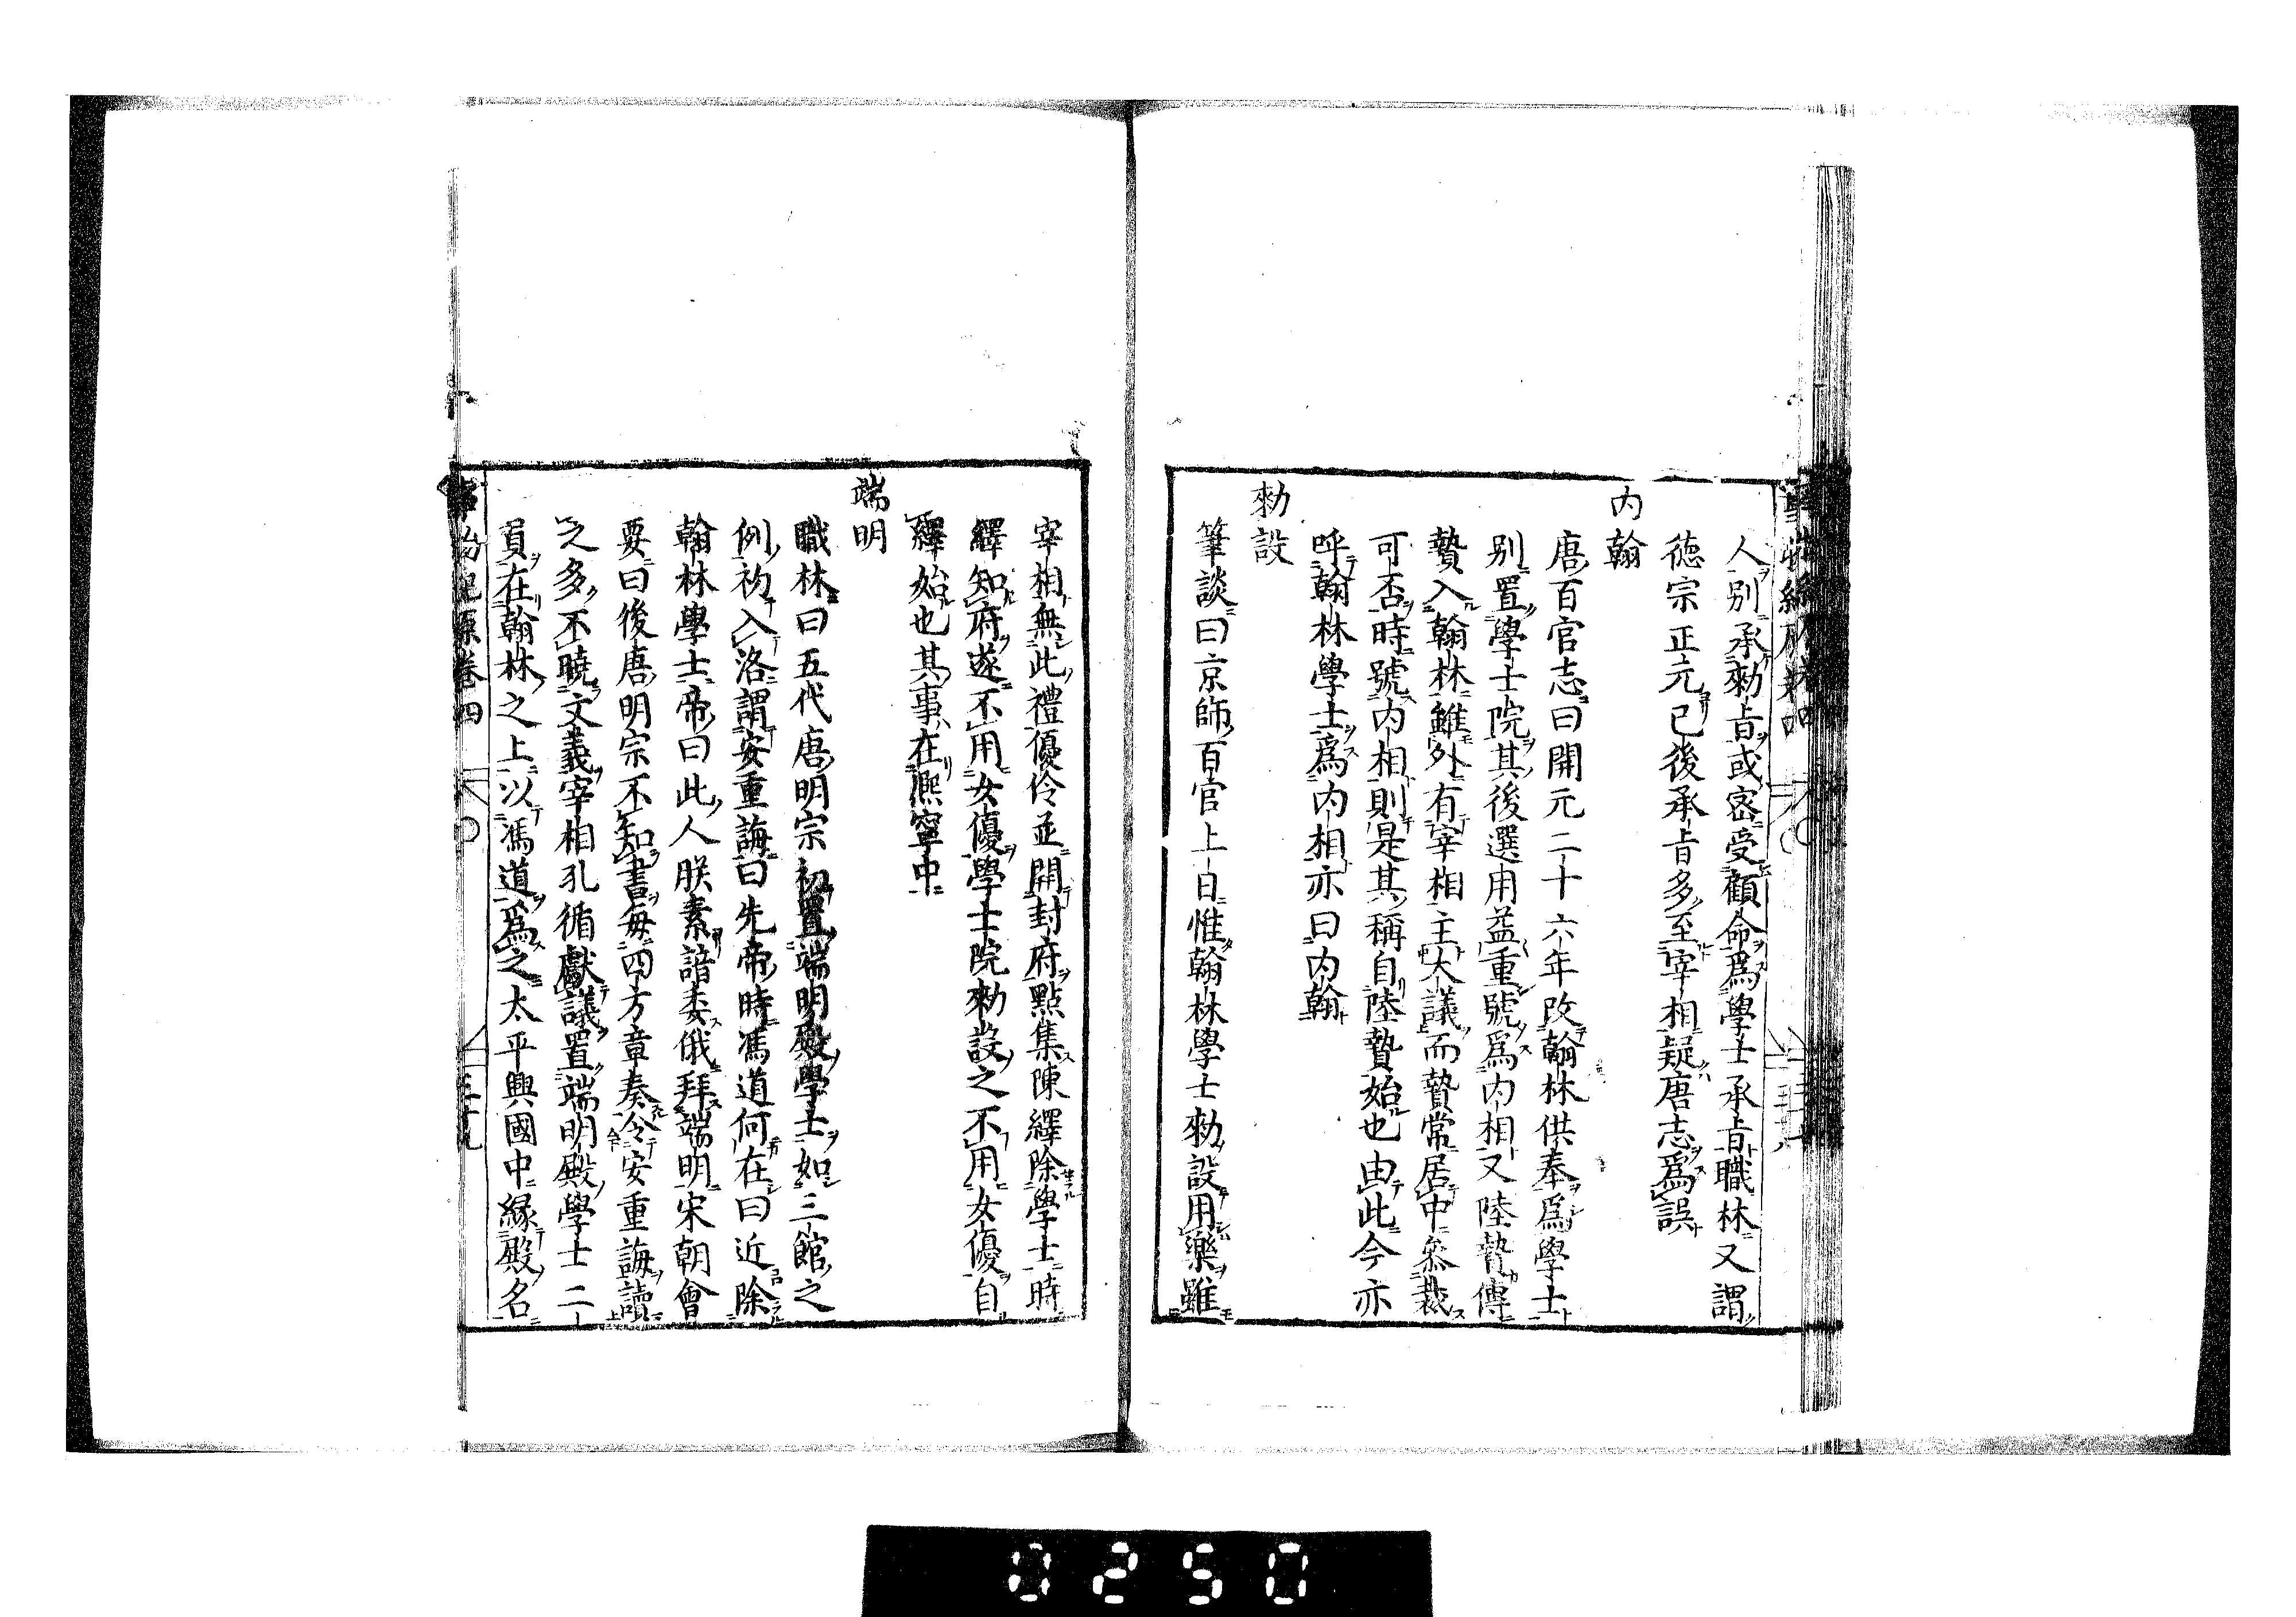 人別承勑㫖或密受顧命爲學士承㫖職林又謂
德宗正元已後承㫖多至宰相疑唐志爲誤
内翰
唐百官志曰開元二十六年改翰林供奉爲學士
别置學士院其後選用益重號爲内相又陸贄傳
贄入翰林雖外有宰相主大議而贄常居中叅裁
可否時號内相則是其稱自陸贄始也由此今亦
呼翰林學士爲内相亦曰内翰
勑設
筆談曰京師百官上日惟翰林學士勑設用樂雖
宰相無此禮優伶並開封府點集陳繹除學士時
繹知府遂不用女優學士院勑設之不用女優自
繹始也其事在熈寧中
端明
職林曰五代唐明宗初置端明殿學士如三館之
例初入洛謂安重誨曰先帝時馮道何在曰近除
翰林學士帝曰此人朕素諳委俄拜端明宋朝會
要曰後唐明宗不知書每四方章奏令安重誨讀
之多不曉文義宰相孔循獻議置端明殿學士二
員在翰林之上以馮道爲之太平興國中縁殿名
事物紀原卷四
0250